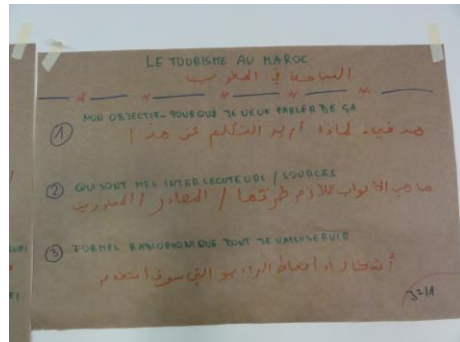 LE TOURISME AU MAROC
السياحة في المغرب
MON OBJECTIF - POURQUOI JE VEUX PARLER DE ÇA
① هدفي - لماذا أريد التكلم عن هذا
② QUI SONT MES INTERLOCUTEURS / SOURCES
ما هي الأبواب اللازم طرقها / المصادر / المحاورين
③ FORMES RADIOPHONIQUE DONT JE VAIS
أشكال أو أنماط الراديو التي سوف أستخدم